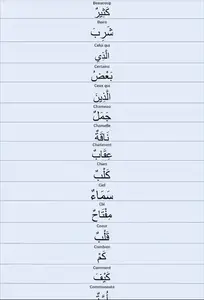 Beaucoup
كَثِيرٌ
Boire
شَرِبَ
Celui qui
الَّذِي
Certains
بَعْضُ
Ceux qui
الَّذِينَ
Chameau
جَمَلٌ
Chamelle
نَاقَةٌ
Chatiment
عِقَابٌ
Chien
كَلْبٌ
Ciel
سَمَاءٌ
Clé
مِفْتَاحٌ
Coeur
قَلْبٌ
Combien
كَمْ
Comment
كَيْفَ
Communauté